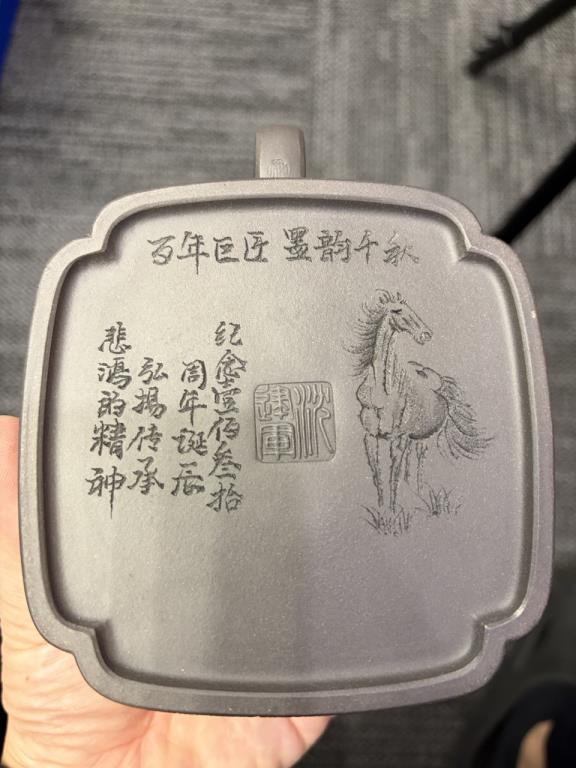 百年巨匠 墨韵千秋
纪念壹佰叁拾
周年诞辰
弘揚传承
悲鸿的精神
沈建軍